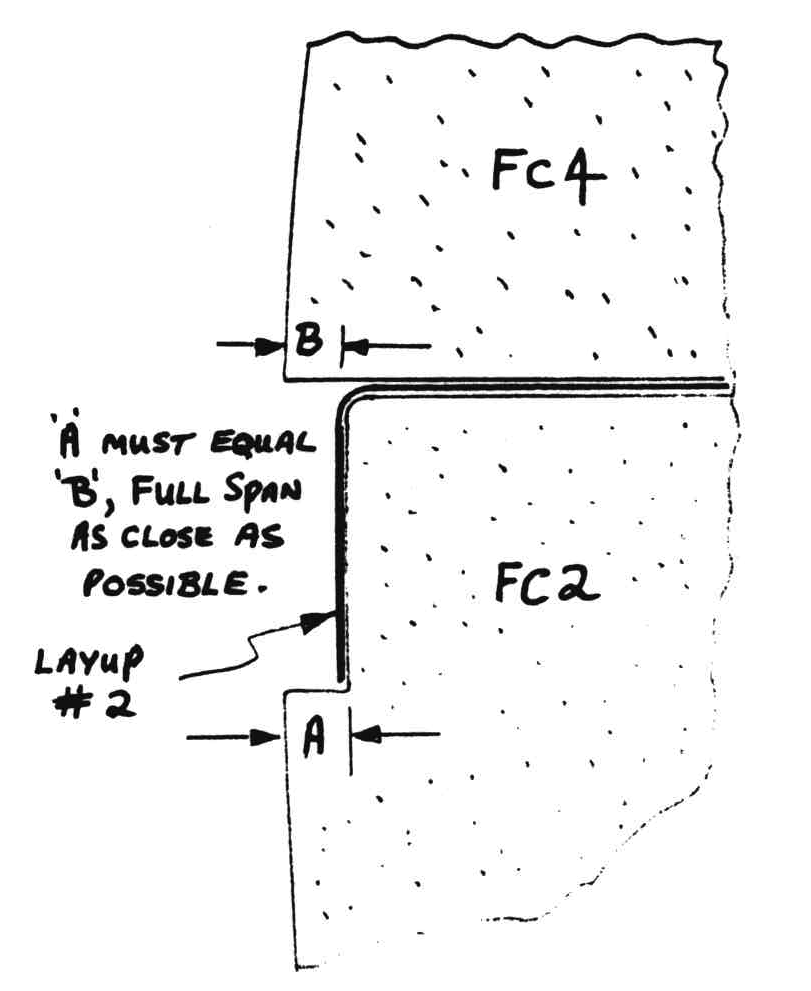 FC4
B
'A' MUST EQUAL
'B', FULL SPAN
AS CLOSE AS
POSSIBLE.
FC2
LAYUP
#2
A